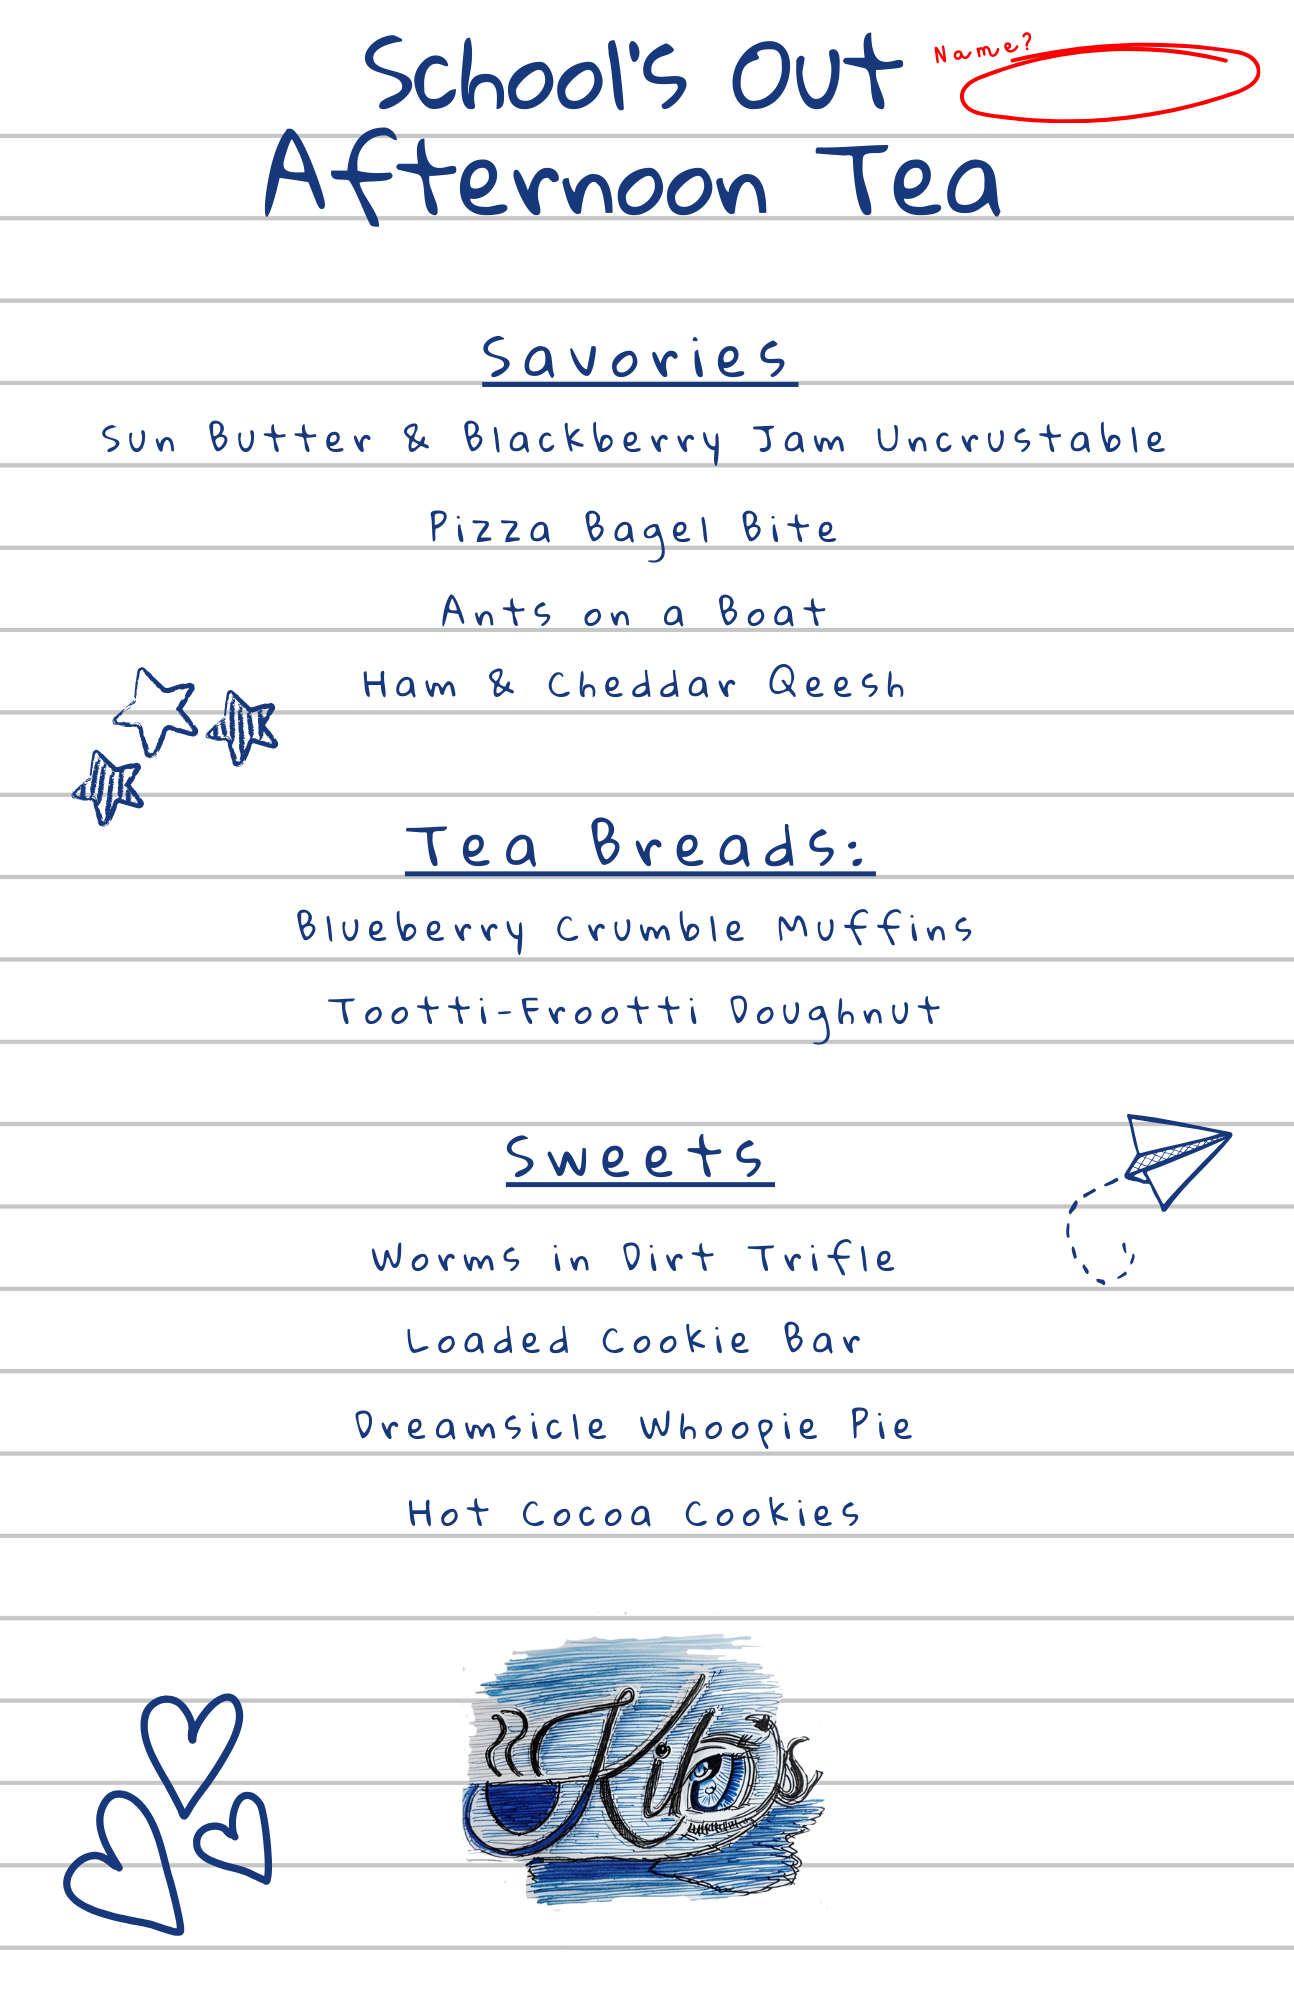 School's Out
Name?
Afternoon Tea
Savories
Sun Butter & Blackberry Jam Uncrustable
Pizza Bagel Bite
Ants on a Boat
Ham & Cheddar Qeesh
Tea Breads:
Blueberry Crumble Muffins
Tootti-Frootti Doughnut
Sweets
Worms in Dirt Trifle
Loaded Cookie Bar
Dreamsicle Whoopie Pie
Hot Cocoa Cookies